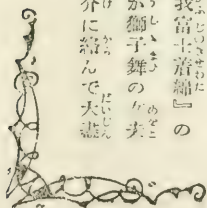 我富士着綿』の
が獅子舞の女夫
介に絡んで大盡